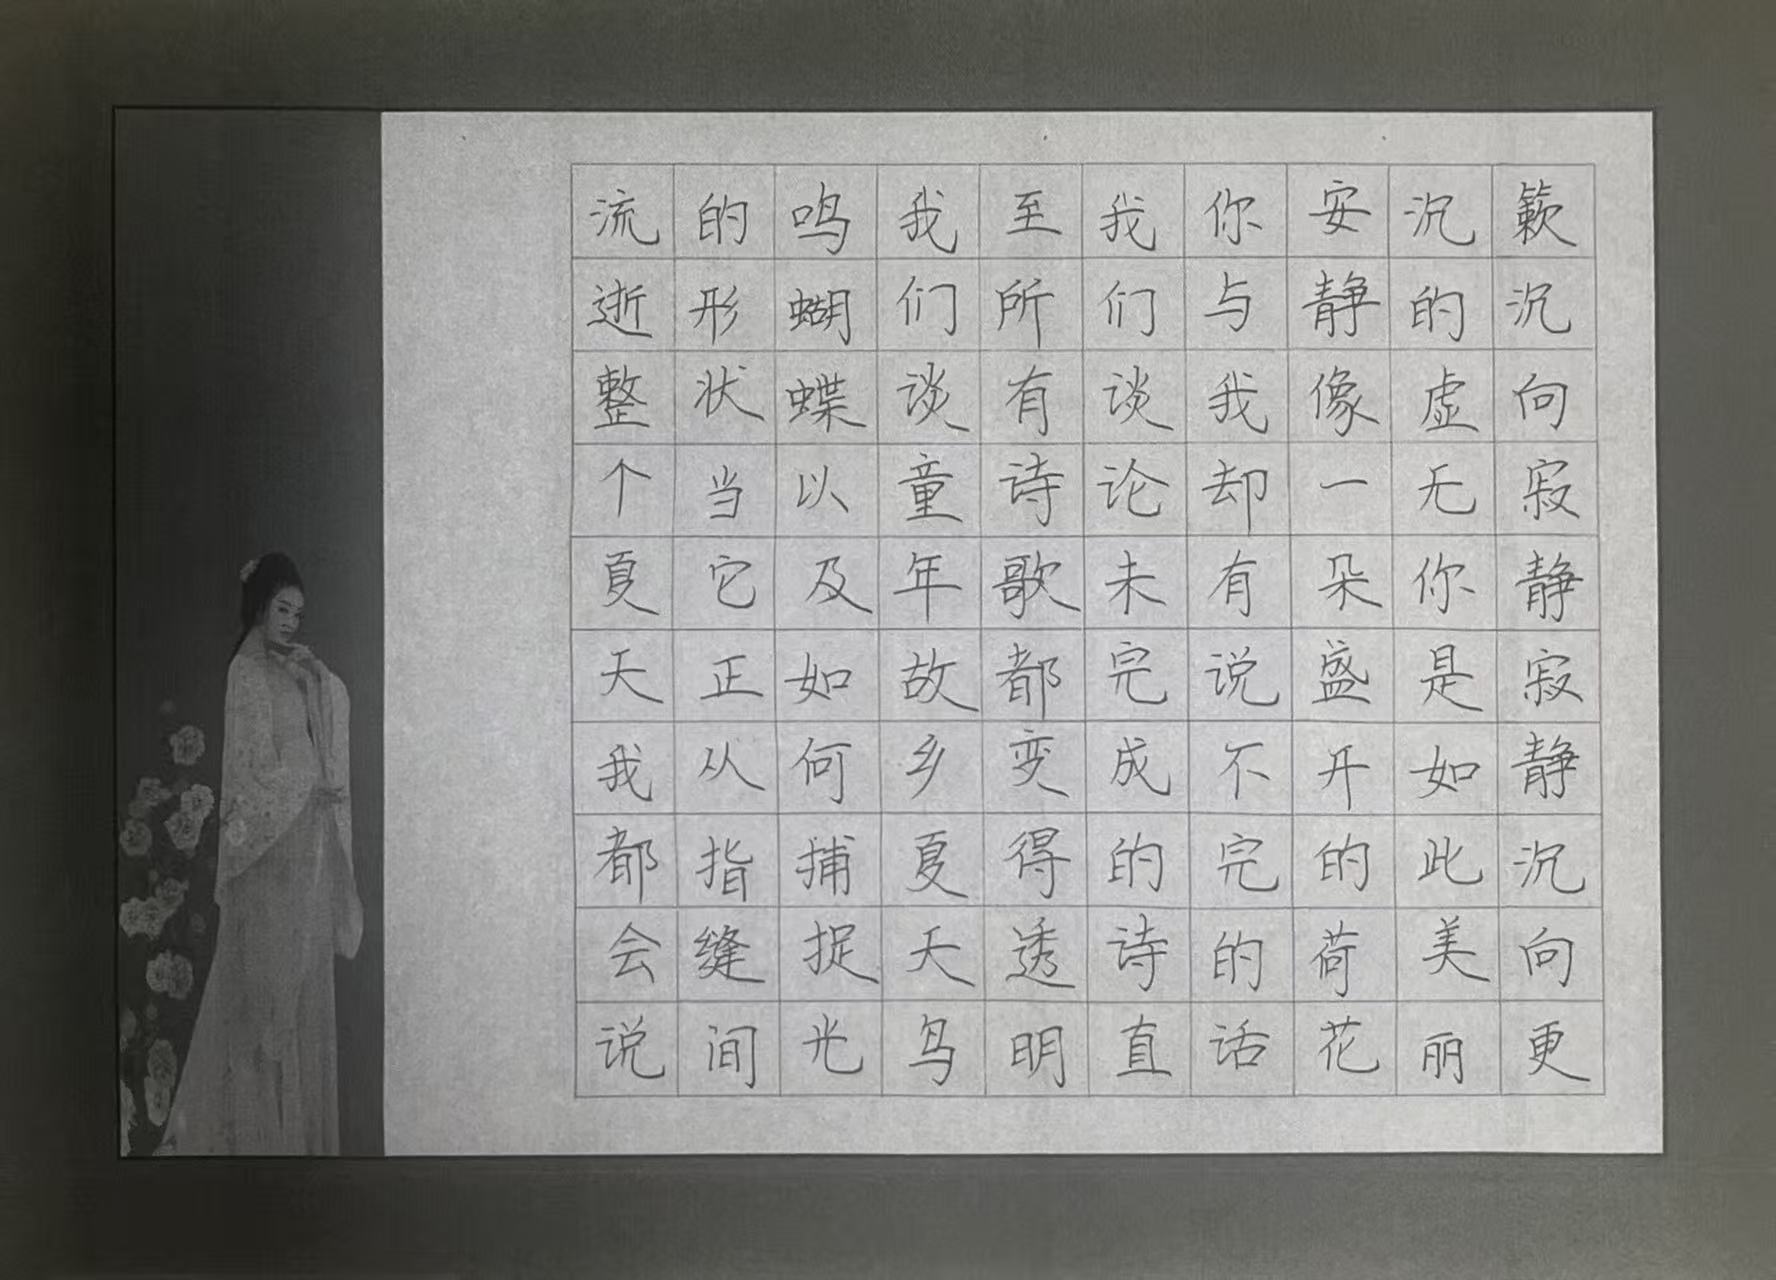 簌沉向寂静寂静沉向更
沉的虚无你是如此美丽
安静像一朵盛开的荷花
你与我却有说不完的话
我们谈论未完成的诗直
至所有诗歌都变得透明
我们谈童年故乡夏天鸟
鸣蝴蝶以及如何捕捉光
的形状当它正从指缝间
流逝整个夏天我都会说